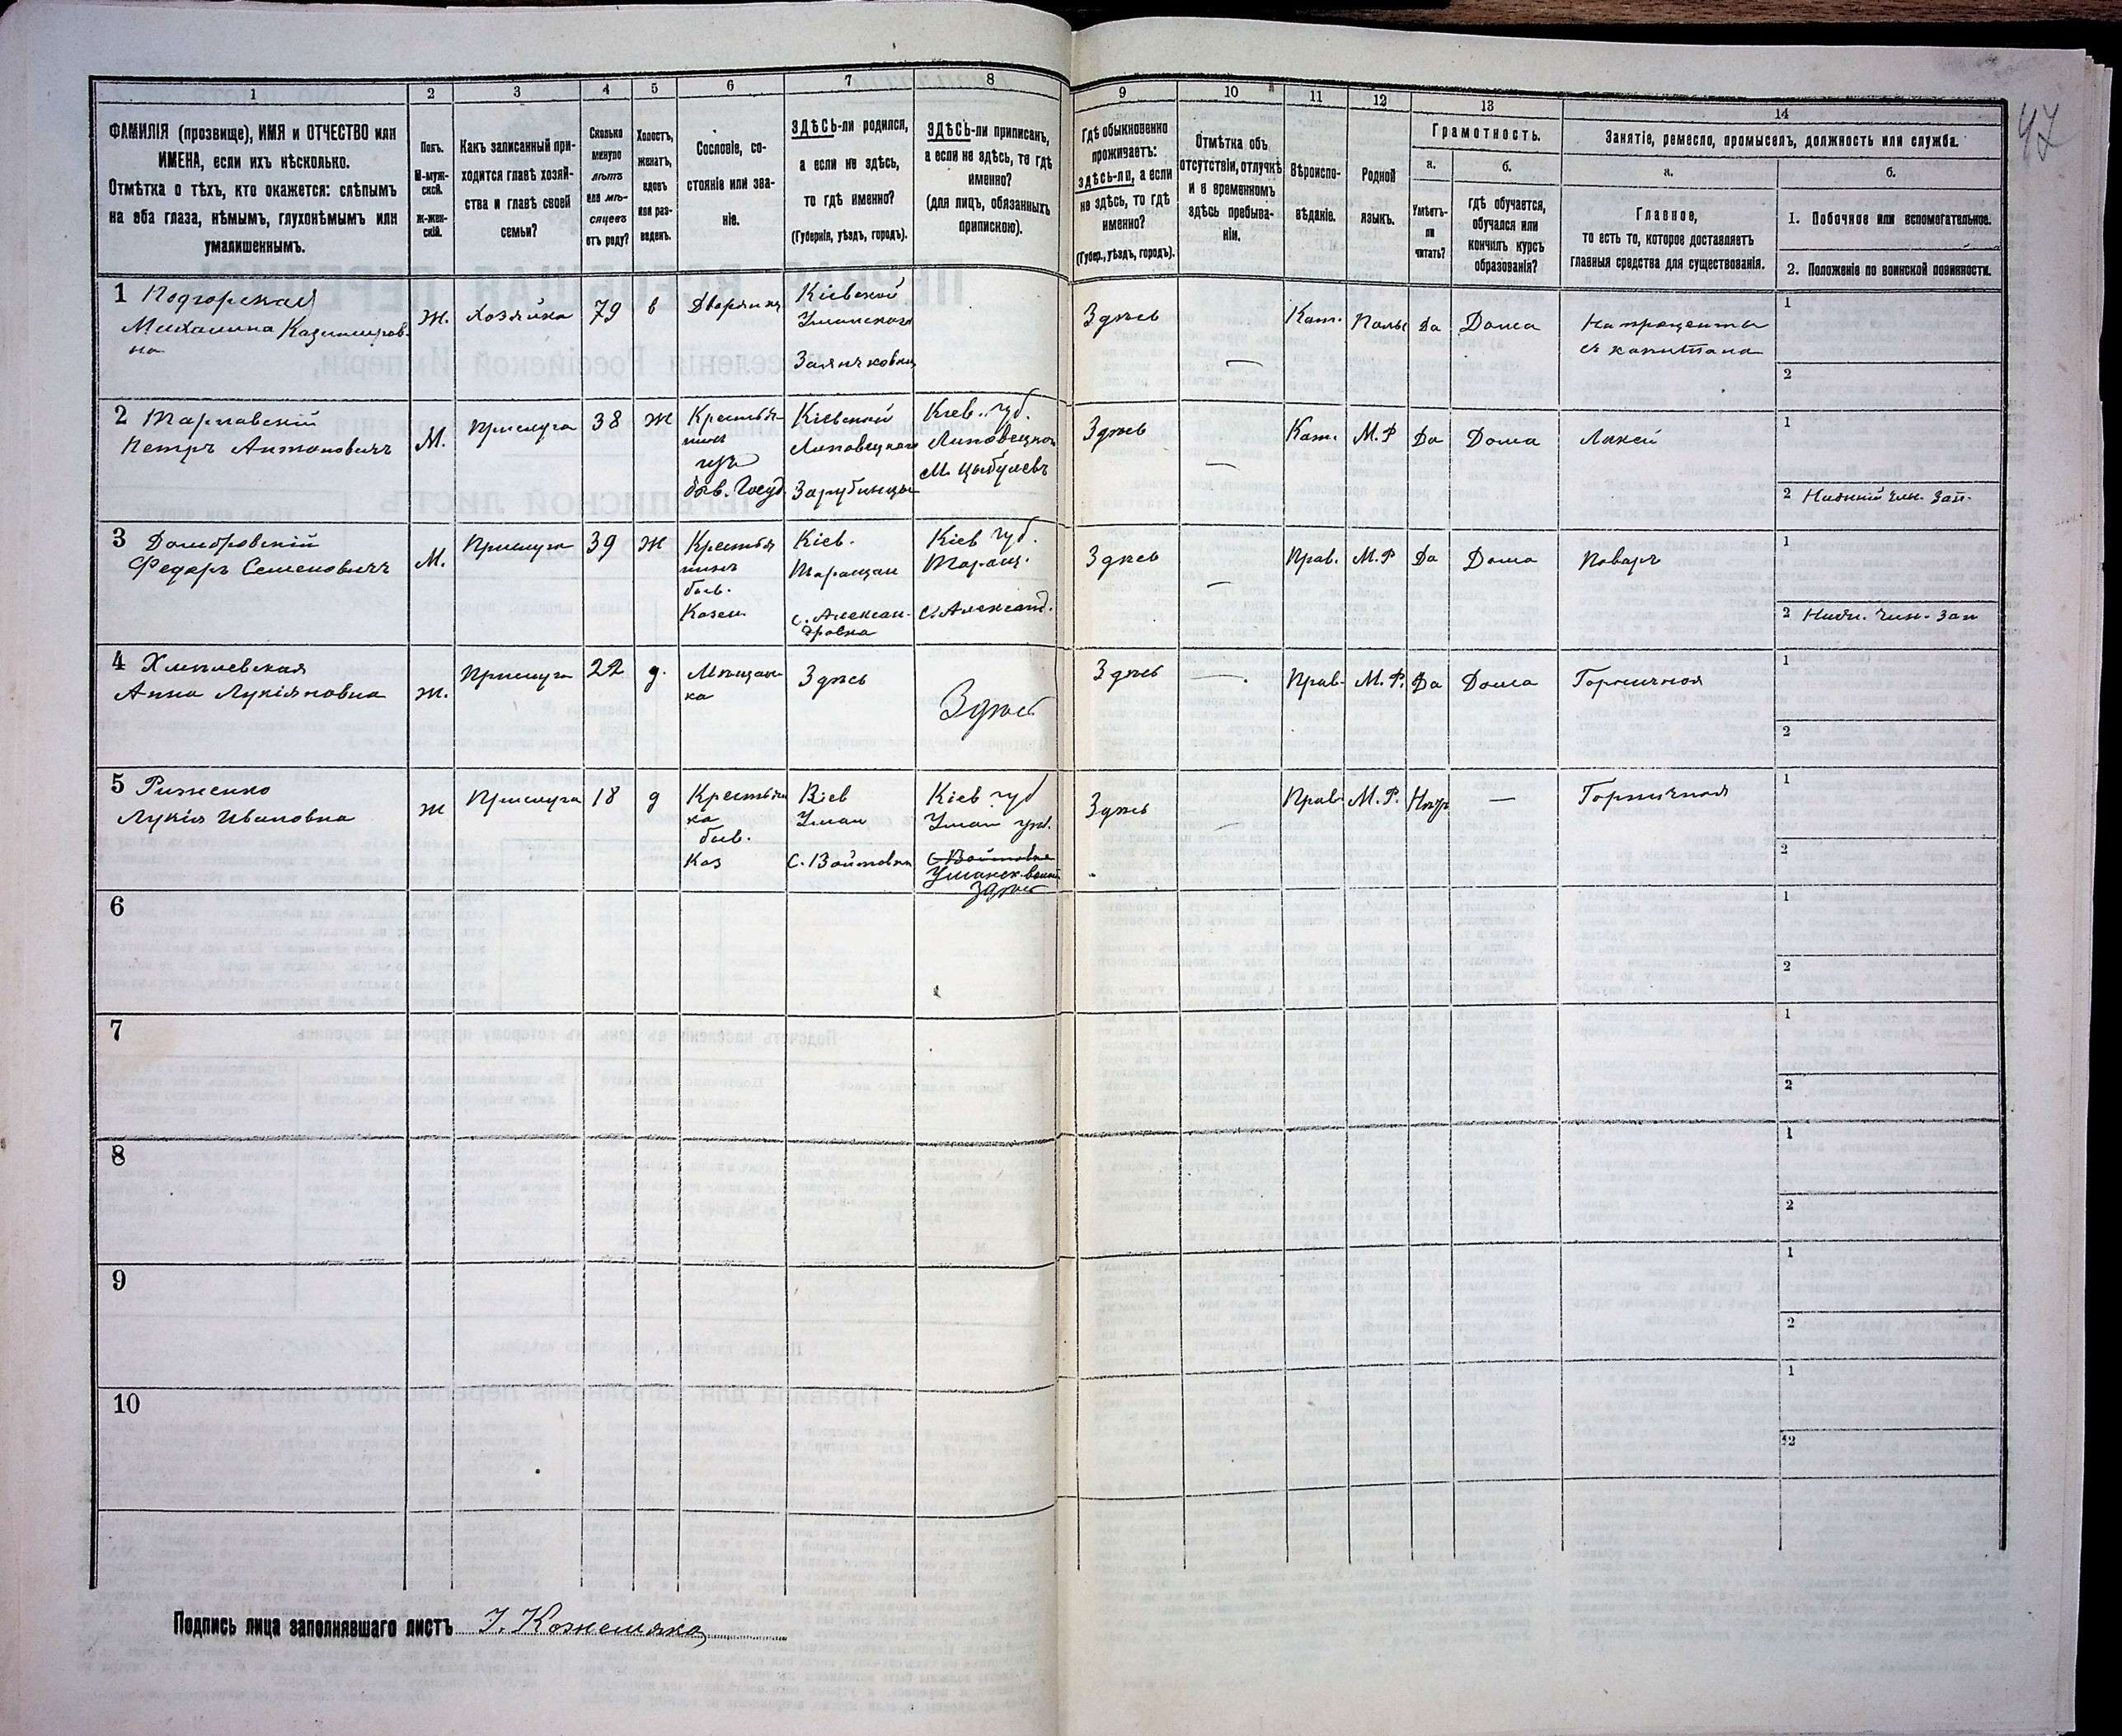 1
2
3
4
5
6
7
8
ФАМИЛІЯ (прозвище), ИМЯ и ОТЧЕСТВО или
ИМЕНА, если ихъ нѣсколько.
Отмѣтка о тѣхъ, кто окажется: слѣпымъ
на оба глаза, нѣмымъ, глухонѣмымъ или
умалишеннымъ.
Полъ.
М-муж-
ской.
Ж-жен-
скій.
Какъ записанный при-
ходится главѣ хозяй-
ства и главѣ своей
семьи?
Сколько
минуло
лѣтъ
или мѣ-
сяцевъ
отъ роду?
Холостъ,
женатъ,
вдовъ
или раз-
веденъ.
Сословіе, со-
стояніе или зва-
ніе.
ЗДѢСЬ-ли родился,
а если не здѣсь,
то гдѣ именно?
(Губернія, уѣздъ, городъ).
ЗДѢСЬ-ли приписанъ,
а если не здѣсь, то гдѣ
именно?
(для лицъ, обязанныхъ
припискою).
9
10
11
12
13
14
47
Гдѣ обыкновенно
проживаетъ:
здѣсь-ли, а если
не здѣсь, то гдѣ
именно?
(Губер., уѣздъ, городъ).
Отмѣтка объ
отсутствіи, отлучкѣ
и о временномъ
здѣсь пребыва-
ніи.
Вѣроиспо-
вѣданіе.
Родной
языкъ.
Грамотность.
а.
б.
Умѣетъ-
ли
читать?
гдѣ обучается,
обучался или
кончилъ курсъ
образованія?
Занятіе, ремесло, промыселъ, должность или служба.
а.
б.
Главное,
то есть то, которое доставляетъ
главныя средства для существованія.
1. Побочное или вспомогательное.
2. Положеніе по воинской повинности.
1 Подгорская
Михалина Казимиров-
на
Ж.
Хозяйка
79
в
Дворянка
Кіевской
Уманскаго
Здѣсь
—
Кат.
Польс
Да
Дома
На проценты
съ капитала
1
2
2 Тарнавскій
Петръ Антоновичъ
М.
Прислуга
38
ж
Крестья
нинъ
изъ
быв. Госуд.
Кіевской
Липовецкаго
Зарубинцы
Кіев. губ.
Липовецкой
М. Цыбулевъ
Здѣсь
—
Кат.
М.Р
Да
Дома
Лакей
1
2 Нижній чин. зап.
3 Домбровскій
Федоръ Семеновичъ
М.
Прислуга
39
ж
Крестья
нинъ
быв.
Казен
Кіев.
Таращан
с. Алексан-
дровка
Кіев губ.
Таращ.
с. Александ.
Здѣсь
—
Прав.
М.Р
Да
Дома
Поваръ
1
2 Нижн. чин. зап
4 Хмелевская
Анна Лукіяновна
ж.
Прислуга
22
д.
Мѣщан-
ка
Здѣсь
Здѣсь
Здѣсь
—
Прав.
М.Р.
Да
Дома
Горничная
1
2
5 Риженко
Лукія Ивановна
ж
Прислуга
18
д
Крестьян
ка
быв.
Каз
Кіев
Уман
с. Войтовка
Кіев губ
Уман уѣз.
с Войтовка
Уманск.
Здѣсь
Здѣсь
—
Прав
М.Р.
Нѣтъ
—
Горничная
1
2
6
1
2
7
1
2
8
1
2
9
1
2
10
1
2
Подпись лица заполнявшаго листъ І. Кожемяка